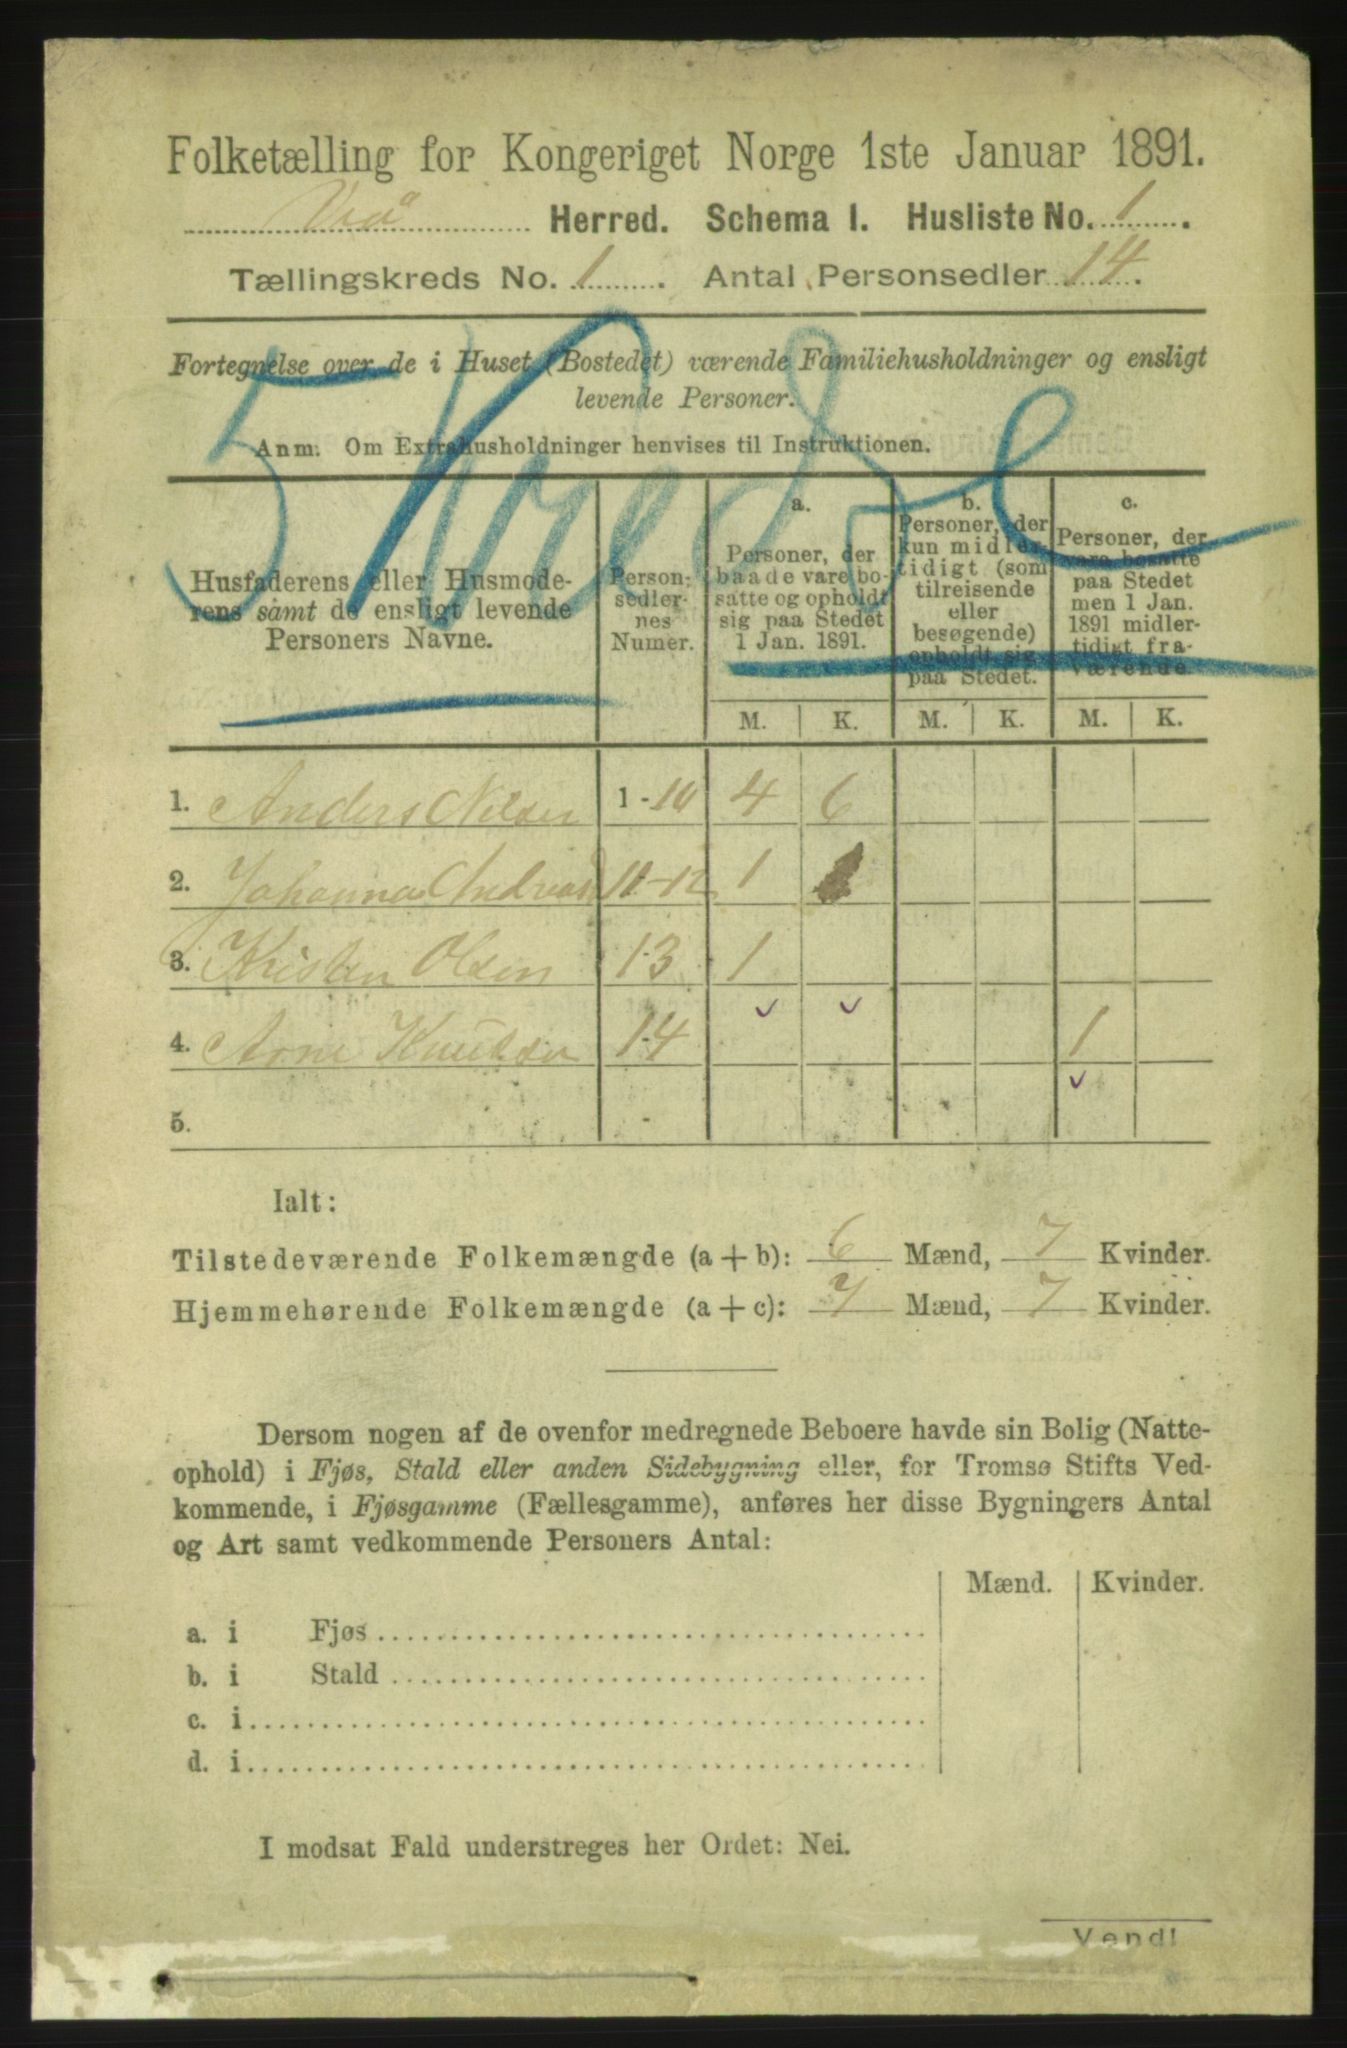 Folketælling for Kongeriget Norge 1ste Januar 1891.
Herred. Schema I. Husliste No. 1.
Tællingskreds No. 1. Antal Personsedler 14.
Fortegnelse over de i Huset (Bostedet) værende Familiehusholdninger og ensligt
levende Personer.
Anm. Om Extrahusholdninger henvises til Instruktionen.
5 Kredse
Husfaderens eller Husmode-
rens samt de ensligt levende
Personers Navne.
Person-
sedler-
nes
Numer.
a.
Personer, der
baade vare bo-
satte og opholdt
sig paa Stedet
1 Jan. 1891.
b.
Personer, der
kun midler-
tidigt (som
tilreisende
eller
besøgende)
opholdt sig
paa Stedet.
c.
Personer, der
vare bosatte
paa Stedet
men 1 Jan.
1891 midler-
tidigt fra-
værende.
M. K. M. K. M. K.
1. Anders Nilsen 1-10 4 6
2. Johanna 11-12 1
3. Kristen Olsen 13 1
4. Arne Knudsen 14 1
5. -
Ialt:
Tilstedeværende Folkemængde (a + b): 6 Mænd, 7 Kvinder.
Hjemmehørende Folkemængde (a + c): 7 Mænd, 7 Kvinder.
Dersom nogen af de ovenfor medregnede Beboere havde sin Bolig (Natte-
ophold) i Fjøs, Stald eller anden Sidebygning eller, for Tromsø Stifts Ved-
kommende, i Fjøsgamme (Fællesgamme), anføres her disse Bygningers Antal
og Art samt vedkommende Personers Antal:
Mænd. Kvinder.
a. i Fjøs
b. i Stald
c. i
d. i
I modsat Fald understreges her Ordet: Nei.
Vend!